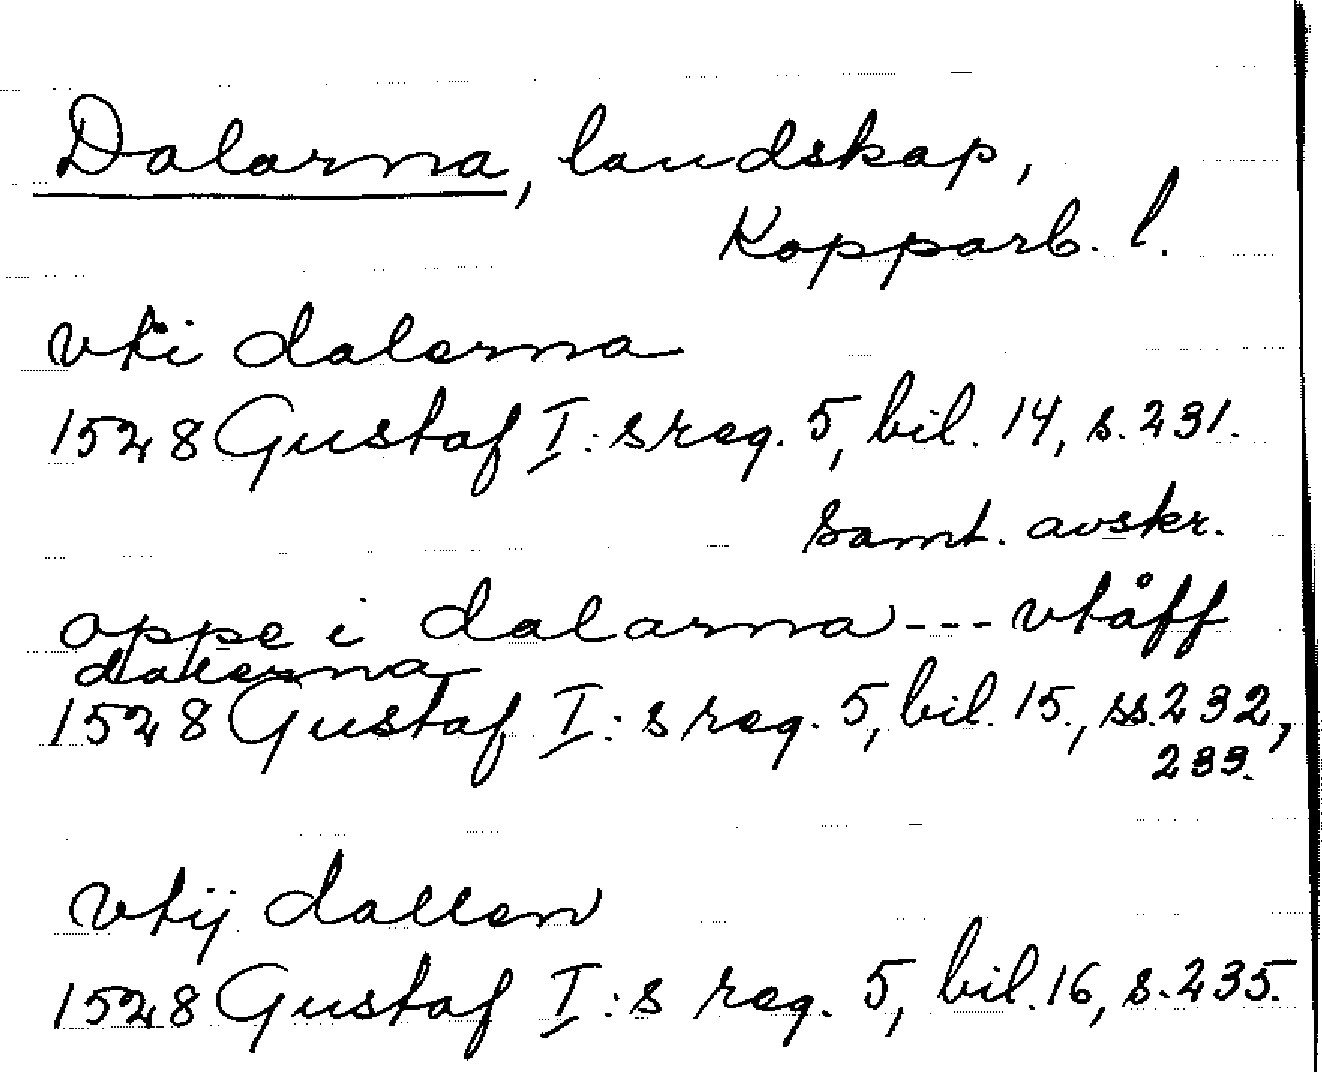 Dalarna, landskap,
Kopparb. l.
vti dalerna
1528 Gustaf I:s reg. 5, bil. 14, s. 231.
samt. avskr.
oppe i dalarna --- vtåff
dalerna
1528 Gustaf I:s reg. 5, bil. 15., ss. 232,
233.
vtij dallen
1528 Gustaf I:s reg. 5, bil. 16, s. 235.